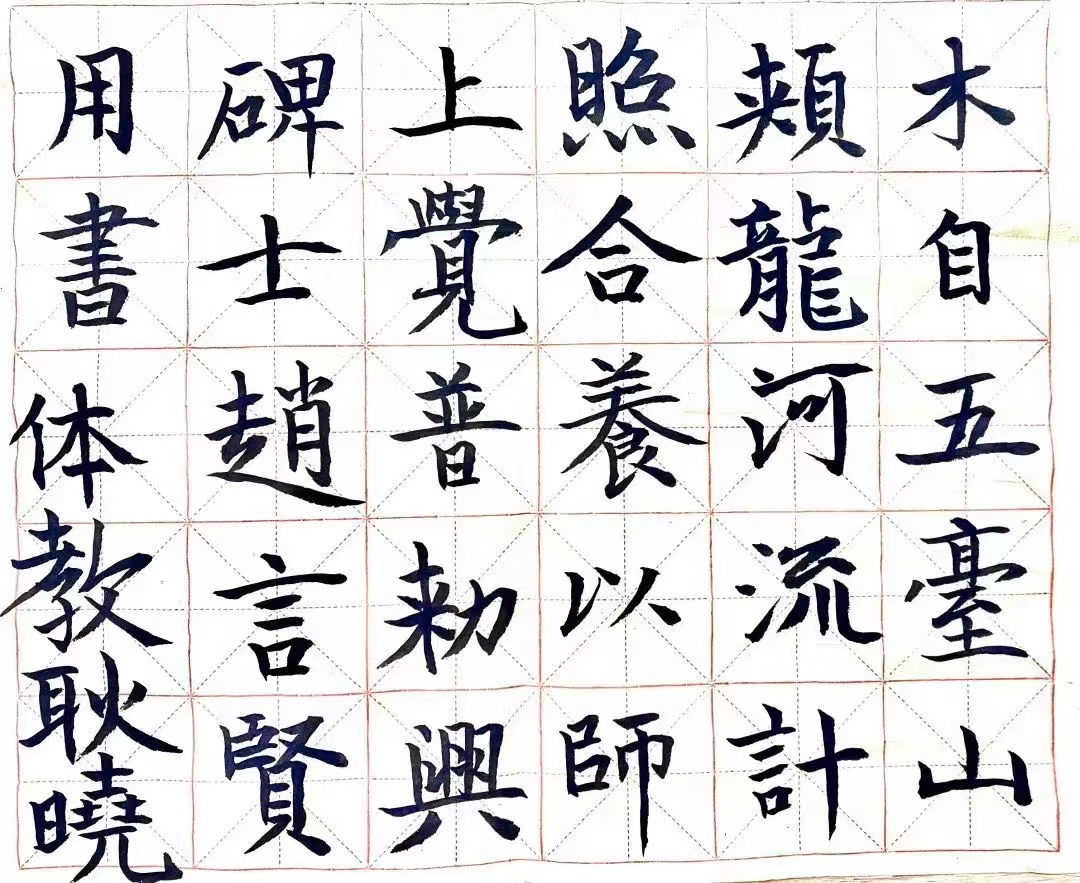 木自五臺山
頰龍河流計
照合養以師
上覺普勅興
碑士趙言賢
用書体教耿曉